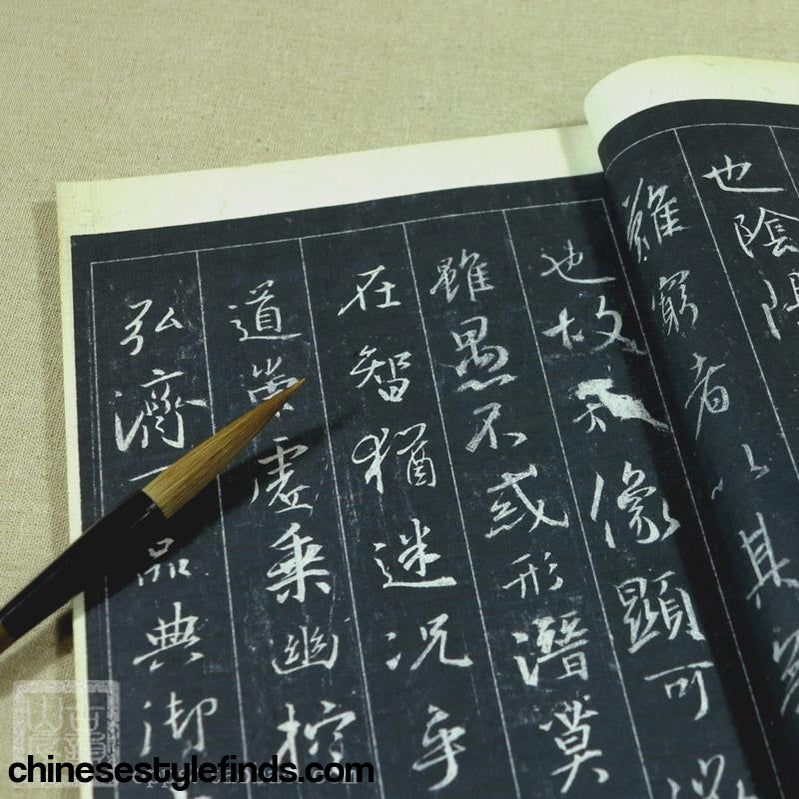 也陰陽
難窮者以其無
也故知像顯可
雖愚不惑形潛莫
在智猶迷況乎
道崇虛乘幽控
弘濟品典御
chinesestylefinds.com